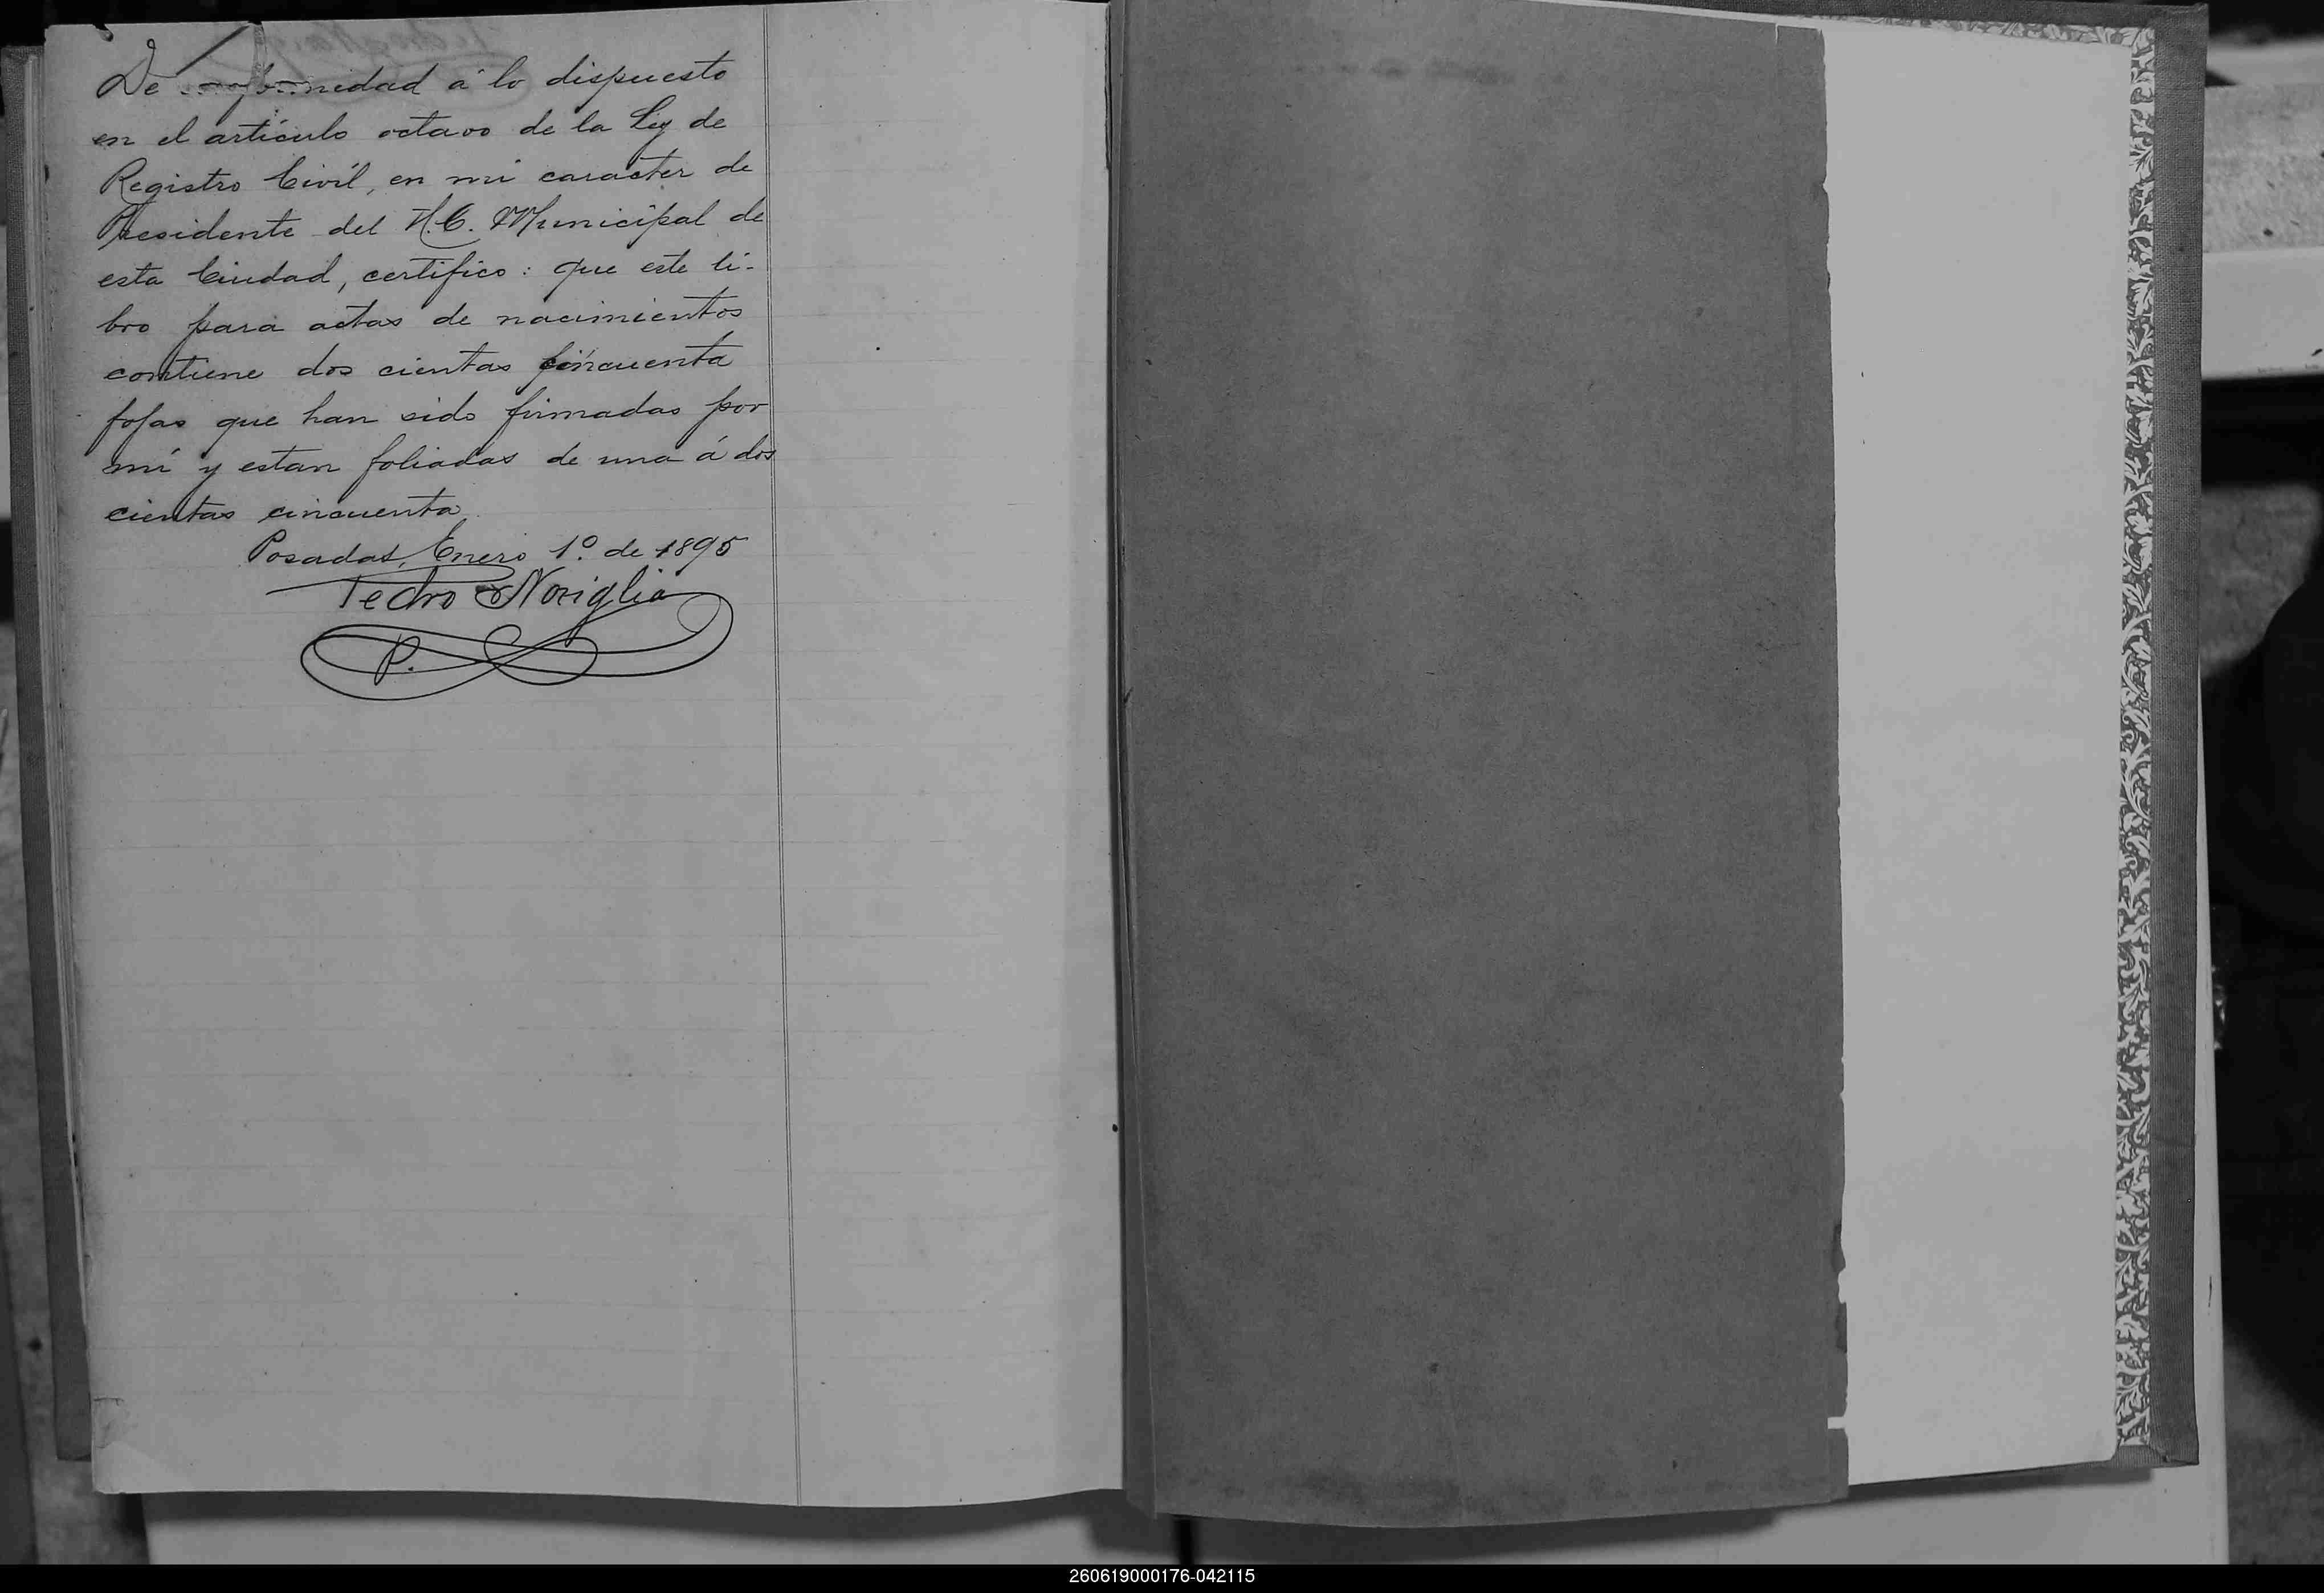 De conformidad á lo dispuesto
en el artículo octavo de la Ley de
Registro Civíl, en mi caracter de
Presidente del H. C. Municipal de
esta Ciudad, certifico: que este li-
bro para actas de nacimientos
contiene dos cientas cincuenta
fojas que han sido firmadas por
mí y estan foliadas de una á dos
cientas cincuenta
Posadas, Enero 1º. de 1895
Pedro Noriglia
P.
260619000176-042115